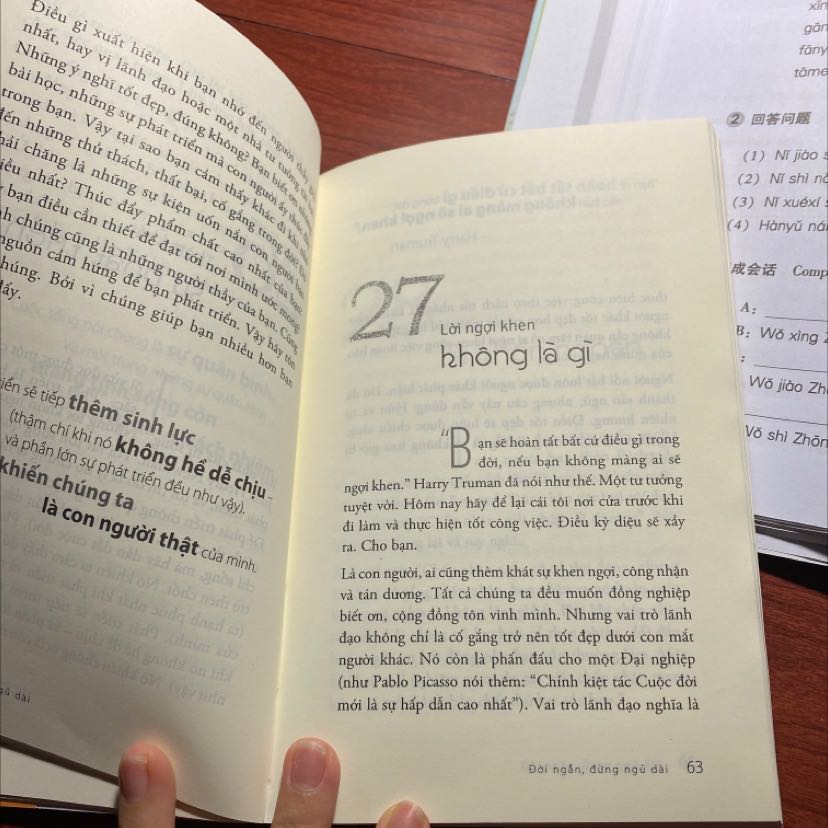 Điều gì xuất hiện khi bạn nhớ đến người thầy
nhất, hay vị lãnh đạo hoặc một nhà tư tưởng
Những ý nghĩ tốt đẹp, đúng không? Bạn biết ơn những
bài học, những sự phát triển mà con người ấy thúc
trong bạn. Vậy tại sao bạn cảm thấy khác đi khi
đến những thử thách, thất bại, cố gắng trong đời?
chăng là những sự kiện uốn nắn con người bạn
nhất? Thúc đẩy phẩm chất cao nhất của bạn
bạn điều cần thiết để đạt tới nơi mình ước mong?
chúng cũng là những người thầy của bạn. Cũng
nguồn cảm hứng để bạn phát triển. Vậy hãy tôn
chúng. Bởi vì chúng giúp bạn nhiều hơn bạn
đấy.
sẽ tiếp thêm sinh lực
(thậm chí khi nó không hề dễ chịu –
và phần lớn sự phát triển đều như vậy).
khiến chúng ta
là con người thật của mình.
ngủ dài
27
Lời ngợi khen
không là gì
"Bạn sẽ hoàn tất bất cứ điều gì trong
đời, nếu bạn không màng ai sẽ
ngợi khen." Harry Truman đã nói như thế. Một tư tưởng
tuyệt vời. Hôm nay hãy để lại cái tôi nơi cửa trước khi
đi làm và thực hiện tốt công việc. Điều kỳ diệu sẽ xảy
ra. Cho bạn.
Là con người, ai cũng thèm khát sự khen ngợi, công nhận
và tán dương. Tất cả chúng ta đều muốn đồng nghiệp
biết ơn, cộng đồng tôn vinh mình. Nhưng vai trò lãnh
đạo không chỉ là cố gắng trở nên tốt đẹp dưới con mắt
người khác. Nó còn là phấn đấu cho một Đại nghiệp
(như Pablo Picasso nói thêm: "Chính kiệt tác Cuộc đời
mới là sự hấp dẫn cao nhất"). Vai trò lãnh đạo nghĩa là
Đời ngắn, đừng ngủ dài 63
xīn
gān
fāny
tāme
② 回答问题
(1) Nǐ jiào
(2) Nǐ shì
(3) Nǐ xuéxí
(4) Hànyǔ
成会话 Comp
A:
B: Wǒ xìng
:
Wǒ jiào Zh
Wǒ shì Zhōn